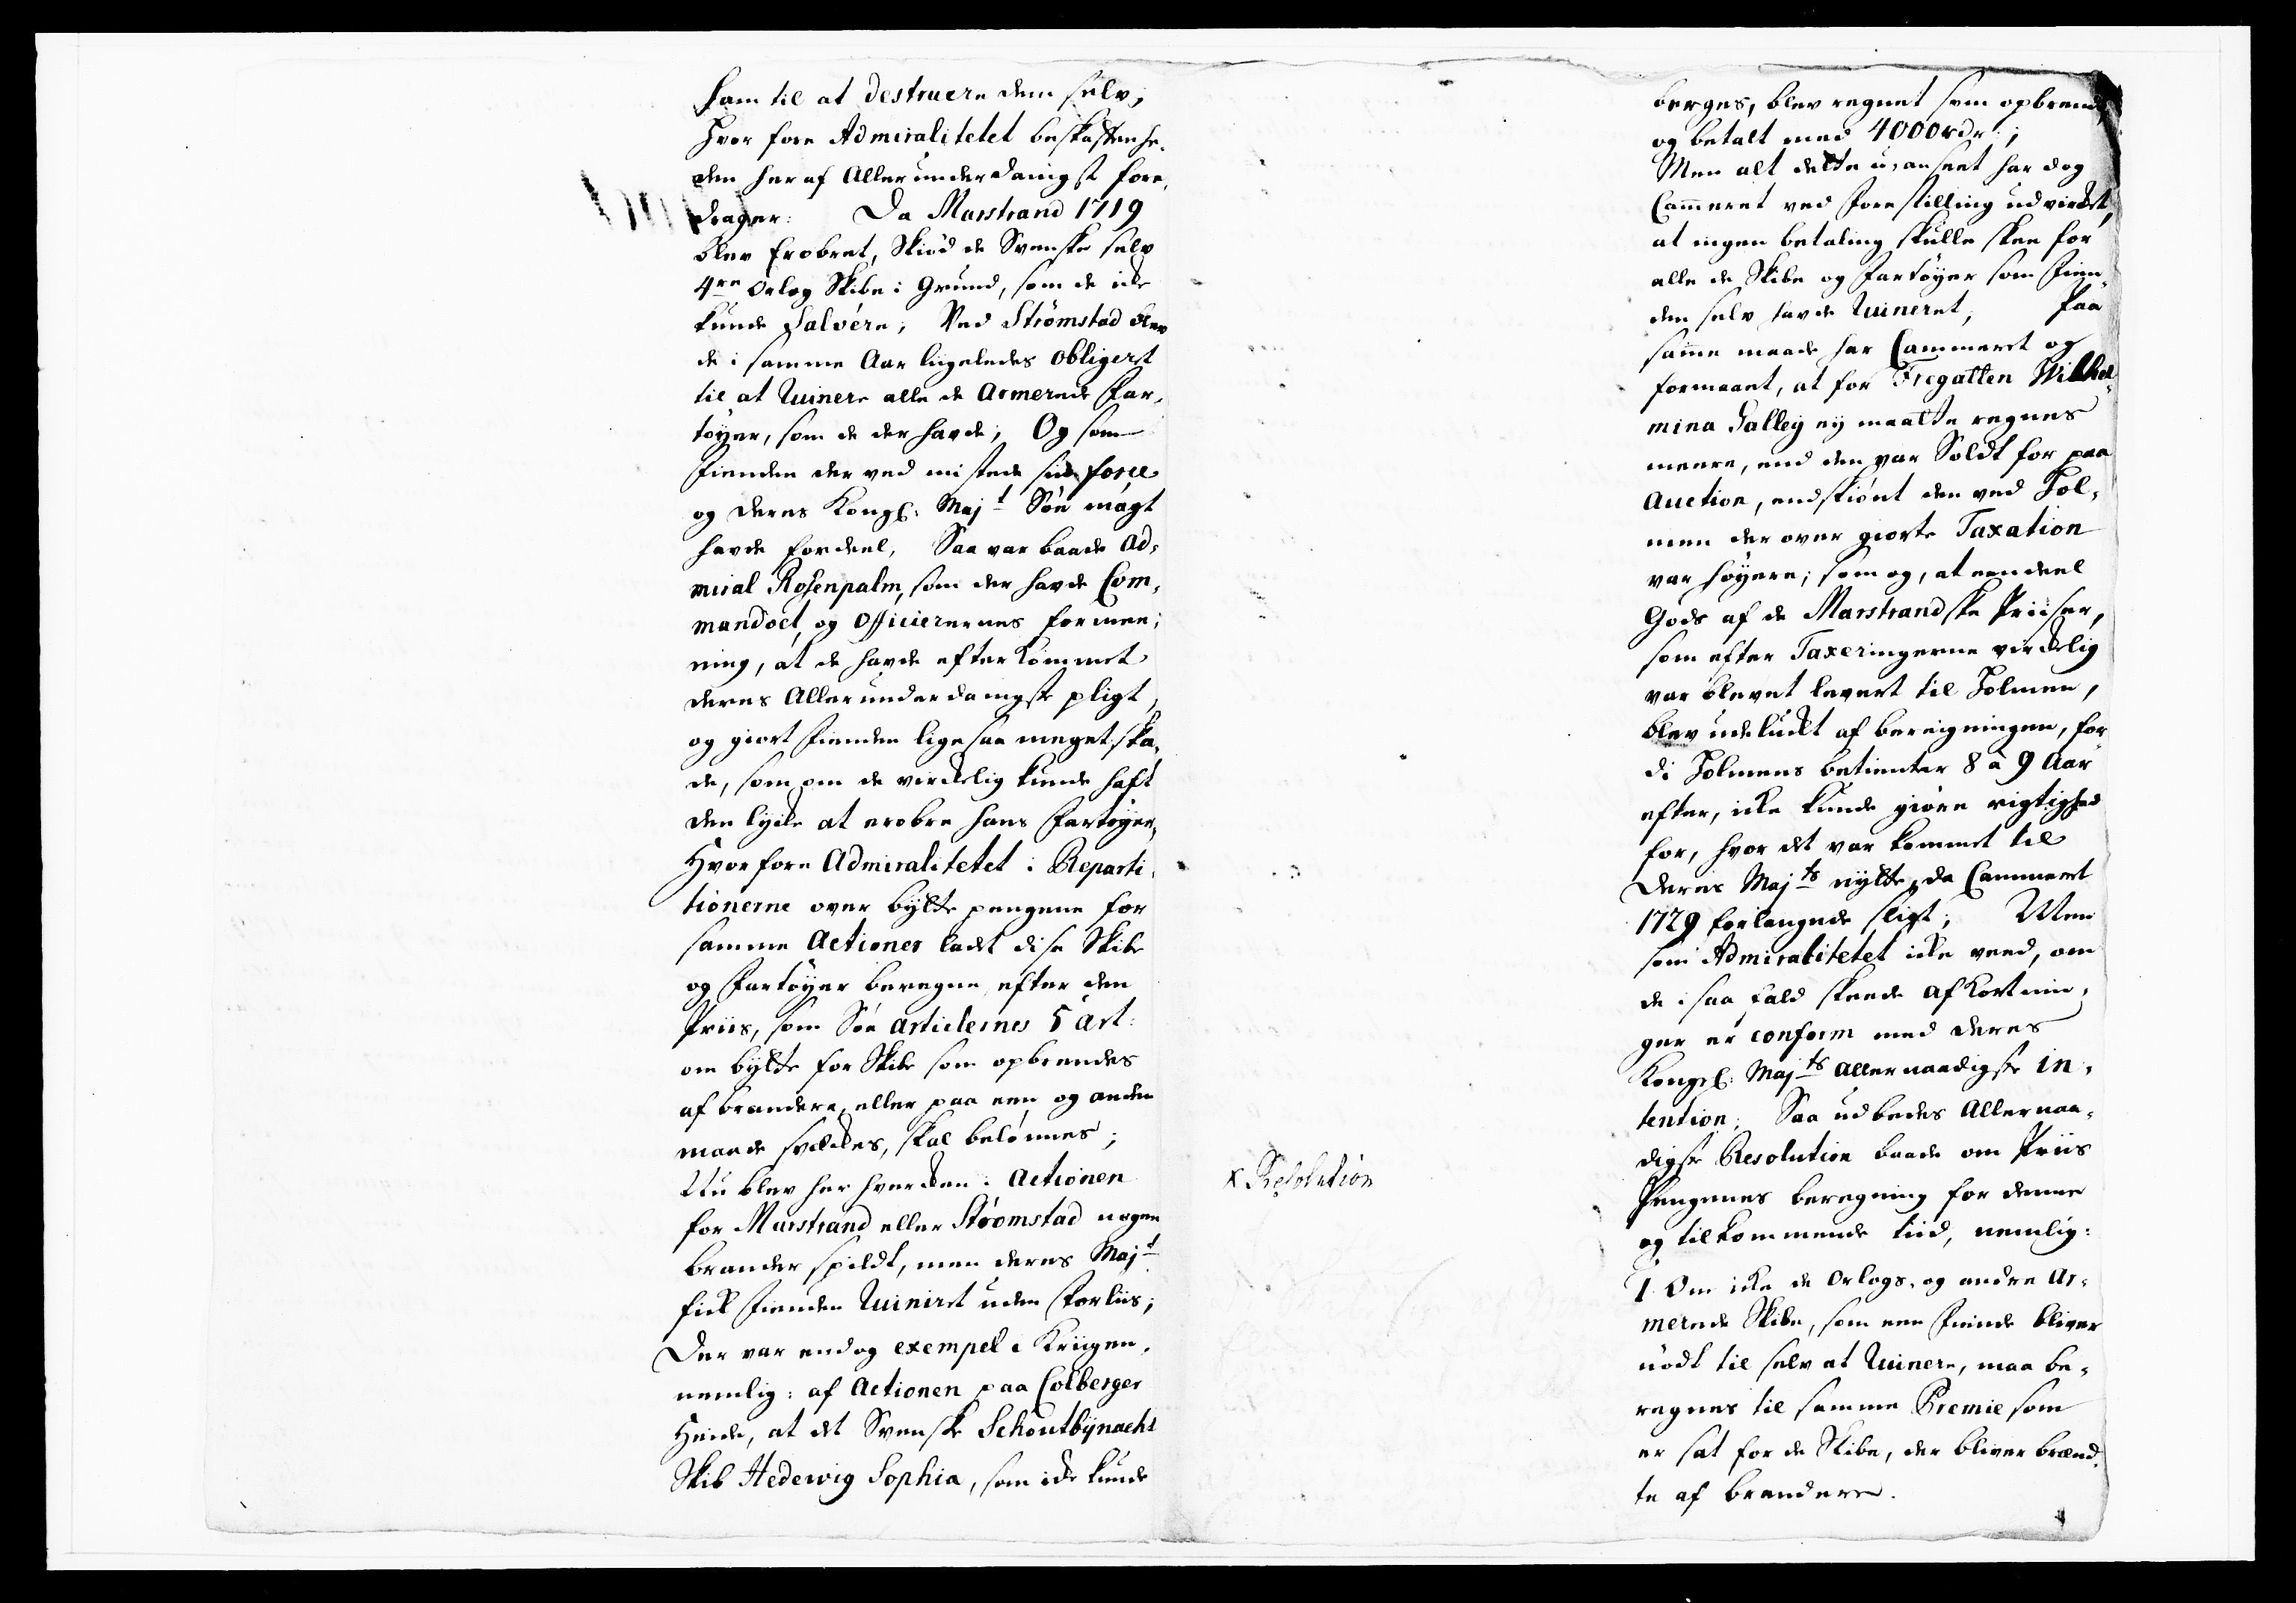 ham til at destruere dem selv;
Hvor fore Admiralitetet beskaffenhe,
den her af Allerunderdanigst fore,
drager: Da Marstrand 1719
blev Erobret, Skiød de Svenske selv
4re Orlog Skibe i Grund, som de icke
kunde Salvére; Ved Strömstad blev
de i samme Aar ligeledes obligeret
til at Ruinere alle de Armerede Far,
töyer, som de der havde; Og som
Fienden der ved mistede sin force
og Deres Kongl: Majt Søe magt
havde fordeel, Saa var baade Ad,
miral Rosenpalm, som der havde Com,
mandoet, og Officierernes formee,
ning, at de havde efterkommet
deres Allerunderdanigste pligt,
og giort Fienden lige saa meget ska,
de, som om de virckelig kunde haft
den lycke at erobre hans Fartøyer,
Hvorfore Admiralitetet i Reparti,
tionerne over bytte pengene for
samme Actioner ladet disse Skibe
og Fartöyer beregne efter den
Priis, som Søe articlernes 5 Art:
om bytte for Skibe som opbrendes
af brandere, eller paa een og anden
maade , skal belønnes;
Nu blev her hverken i Actionen
for Marstrand eller Strömstad nogen
brander spildt, men deres Majt
fick Fienden Ruiniret uden Forliis;
Der var endog exempel i Kriigen,
nemlig: af Actionen paa Colberger
Heide, at det Svenske Schoutbynachts
Skib Hedewig Sophia, som icke kunde
x Resolution
berges, blev regnet som opbrendt,
og betalt med 4000 rdr:;
Men alt dette u,anseet har dog
Cammeret ved Forestilling udvircket,
at ingen betaling skulle skee for
alle de Skibe og Fartöyer som Fien,
den selv havde Ruineret; Paa
samme maade har Cammeret og
formeent, at for Fregatten Wilhel,
mina Galley ey maatte regnes
meere, end den var Soldt for paa
Auction, endskiönt den ved Hol,
men der over giorte Taxation
var høyere; som og, at een deel
Gods af de Marstrandske Priiser,
som efter Taxeringerne virckelig
var blevet levert til Holmen,
blev udeluckt af beregningen, for
di Holmens betienter 8 à 9 Aar
efter, icke kunde giøre rigtighed
for, hvor det var kommet til
Deres Majts nytte, da Cammeret
1729 forlangede sligt; Men
som Admiralitetet icke veed, om
de i saa fald skeede afkortnin,
ger er conform med Deres
Kongel: Majts allernaadigste in,
tention; Saa udbedes Allernaa,
digste Resolution baade om Priis
Pengenes beregning for denne
og tilkommende tiid, nemlig:
1 Om icke de Orlogs, og andre Ar,
merede Skibe, som een Fiende bliver
nödt til selv at Ruinere, maa be,
regnes til samme Premie som
er sat for de Skibe, der bliver brænd,
te af brandere.